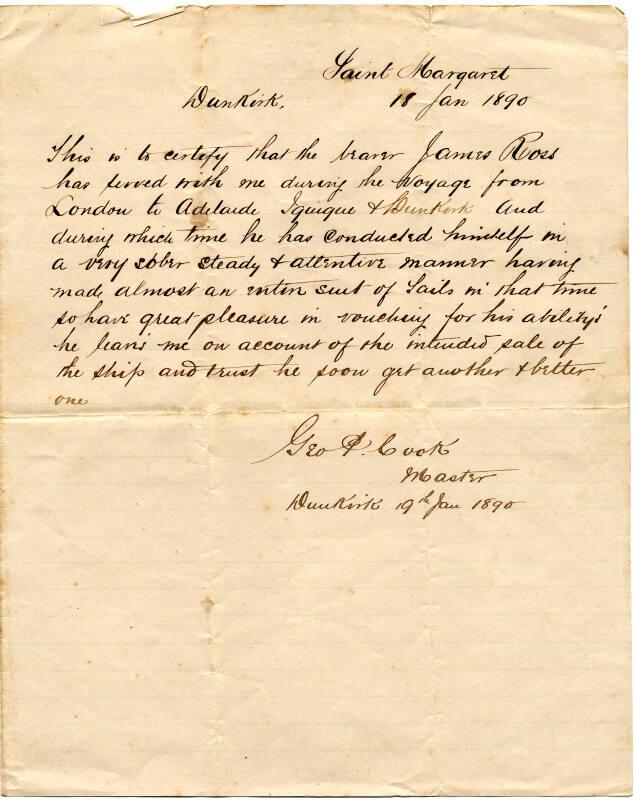 Saint Margaret
Dunkirk, 18 Jan 1890
This is to certify that the bearer James Ross
has served with me during the Voyage from
London to Adelaide Iquique & Dunkirk And
during which time he has conducted himself in
a very sober steady & attentive manner having
made almost an entire suit of Sails in that time
so have great pleasure in vouching for his ability's
he leav's me on account of the intended sale of
the ship and trust he soon get another & better
one
Geo Cook
Master
Dunkirk 19th Jan 1890